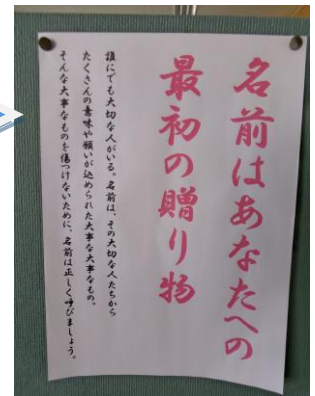 名前はあなたへの
最初の贈り物
誰にでも大切な人がいる。名前は、その大切な人たちから
たくさんの意味や願いが込められた大事な大事なもの。
そんな大事なものを傷つけないために、名前は正しく呼びましょう。